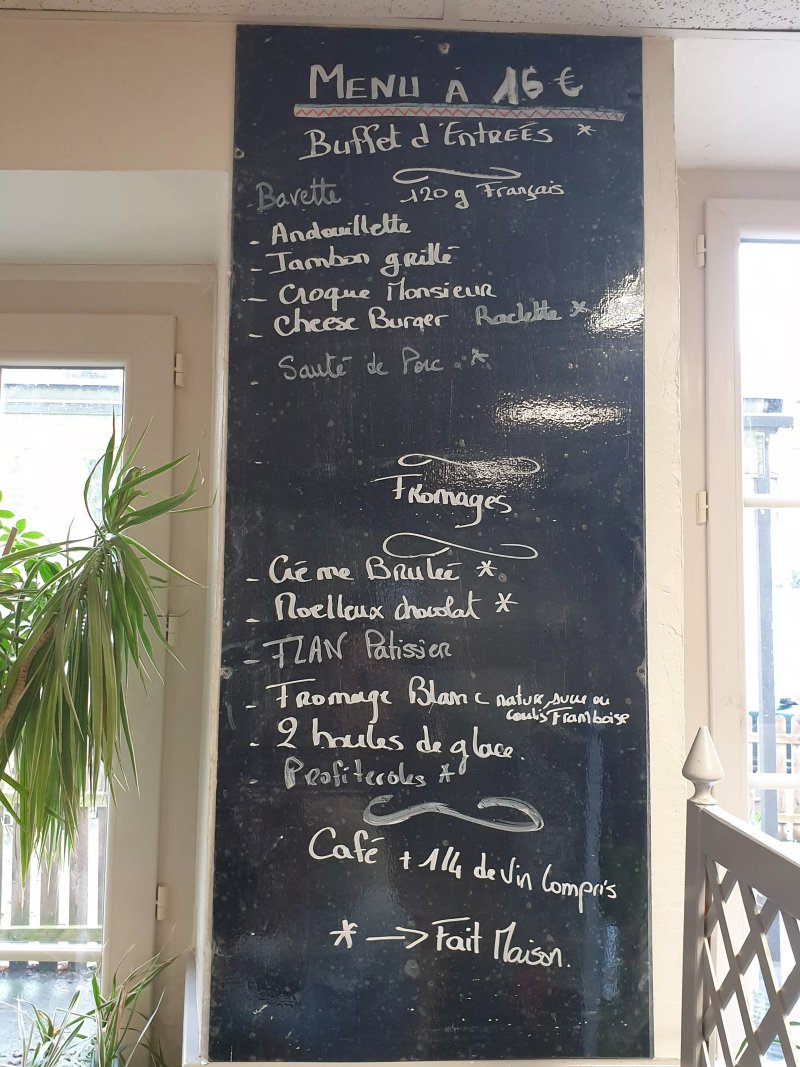 MENU A 16 €
Buffet d'ENTREES *
Bavette 120 g Français
- Andouillette
- Jambon grillé
- Croque Monsieur
- Cheese Burger Raclette *
- Sauté de Porc *
Fromages
- Crème Brulée *
- Moelleux chocolat *
- FLAN Patissier
- Fromage Blanc nature, sucre ou
coulis Framboise
- 2 boules de glace.
- Profiteroles *
Café + 1/4 de Vin Compris
* -> Fait Maison.